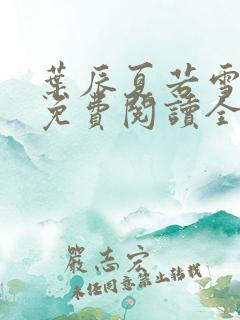 葉辰夏若雪
免費閱讀全
嚴志宏
未經同意禁止轉載